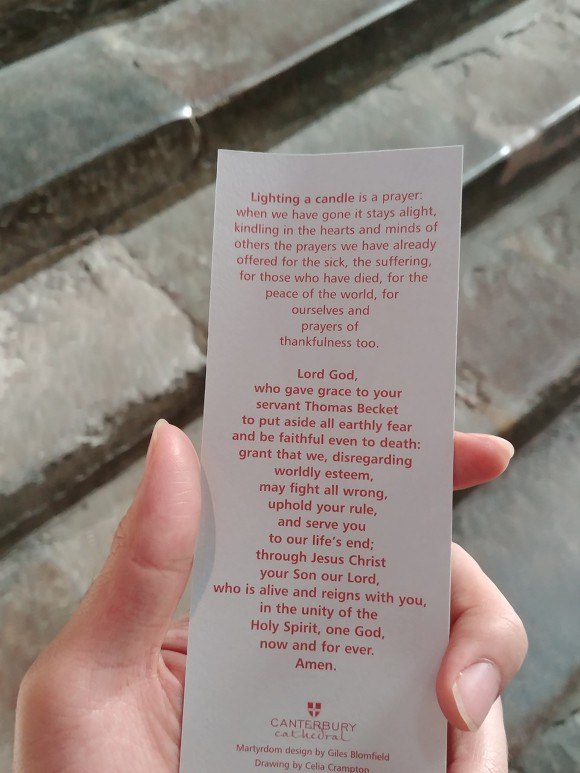 Lighting a candle is a prayer:
when we have gone it stays alight,
kindling in the hearts and minds of
others the prayers we have already
offered for the sick, the suffering,
for those who have died, for the
peace of the world, for
ourselves and
prayers of
thankfulness too.
Lord God,
who gave grace to your
servant Thomas Becket
to put aside all earthly fear
and be faithful even to death:
grant that we, disregarding
worldly esteem,
may fight all wrong,
uphold your rule,
and serve you
to our life's end;
through Jesus Christ
your Son our Lord,
who is alive and reigns with you,
in the unity of the
Holy Spirit, one God,
now and for ever.
Amen.
CANTERBURY
cathedral
Martyrdom design by Giles Blomfield
Drawing by Celia Crampton